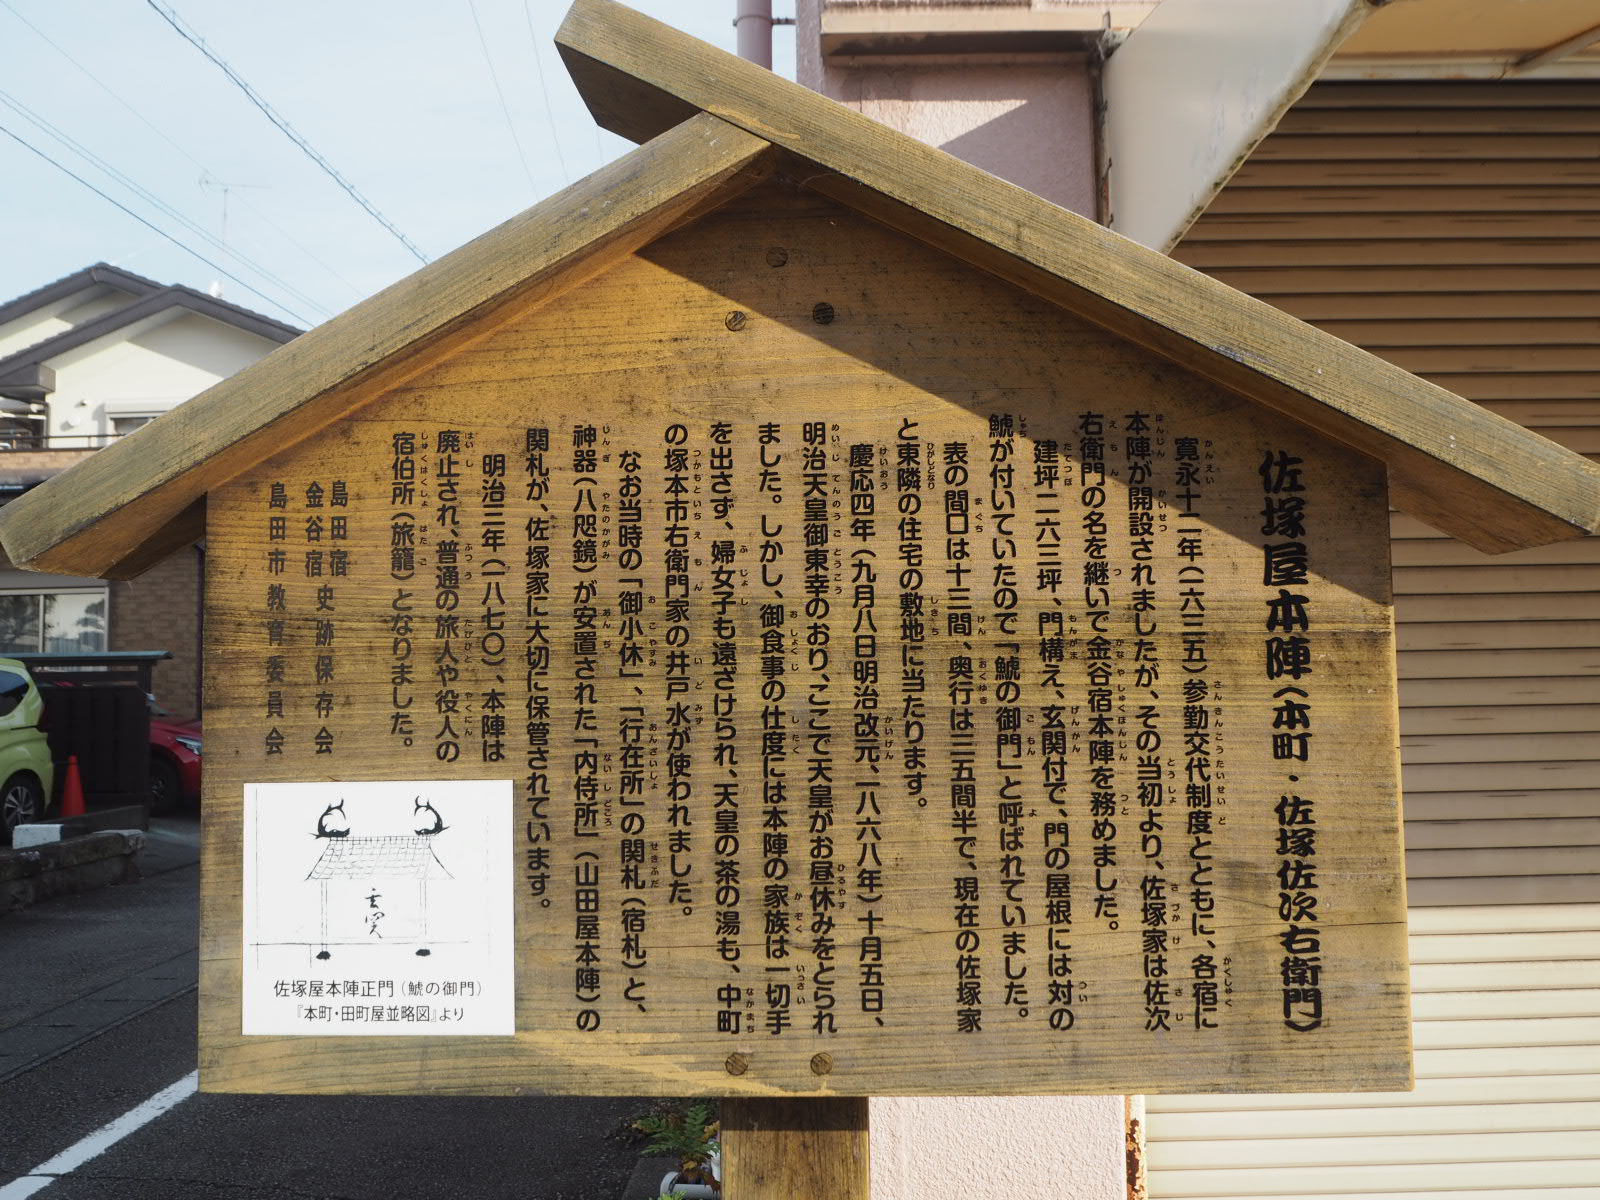 佐塚屋本陣(本町・佐塚佐次右衛門)
寛永十二年(一六三五)参勤交代制度とともに、各宿に
本陣が開設されましたが、その当初より、佐塚家は佐次
右衛門の名を継いで金谷宿本陣を務めました。
建坪二六三坪、門構え、玄関付で、門の屋根には対の
鯱が付いていたので「鯱の御門」と呼ばれていました。
表の間口は十三間、奥行は三五間半で、現在の佐塚家
と東隣の住宅の敷地に当たります。
慶応四年(九月八日明治改元、一八六八年)十月五日、
明治天皇御東幸のおり、ここで天皇がお昼休みをとられ
ました。しかし、御食事の仕度には本陣の家族は一切手
を出さず、婦女子も遠ざけられ、天皇の茶の湯も、中町
の塚本市右衛門家の井戸水が使われました。
なお当時の「御小休」、「行在所」の関札(宿札)と、
神器(八咫鏡)が安置された「内侍所」(山田屋本陣)の
関札が、佐塚家に大切に保管されています。
明治三年(一八七〇)、本陣は
廃止され、普通の旅人や役人の
宿伯所(旅籠)となりました。
島田宿
金谷宿 史跡保存会
島田市教育委員会
玄関
佐塚屋本陣正門(鯱の御門)
『本町・田町屋並略図』より